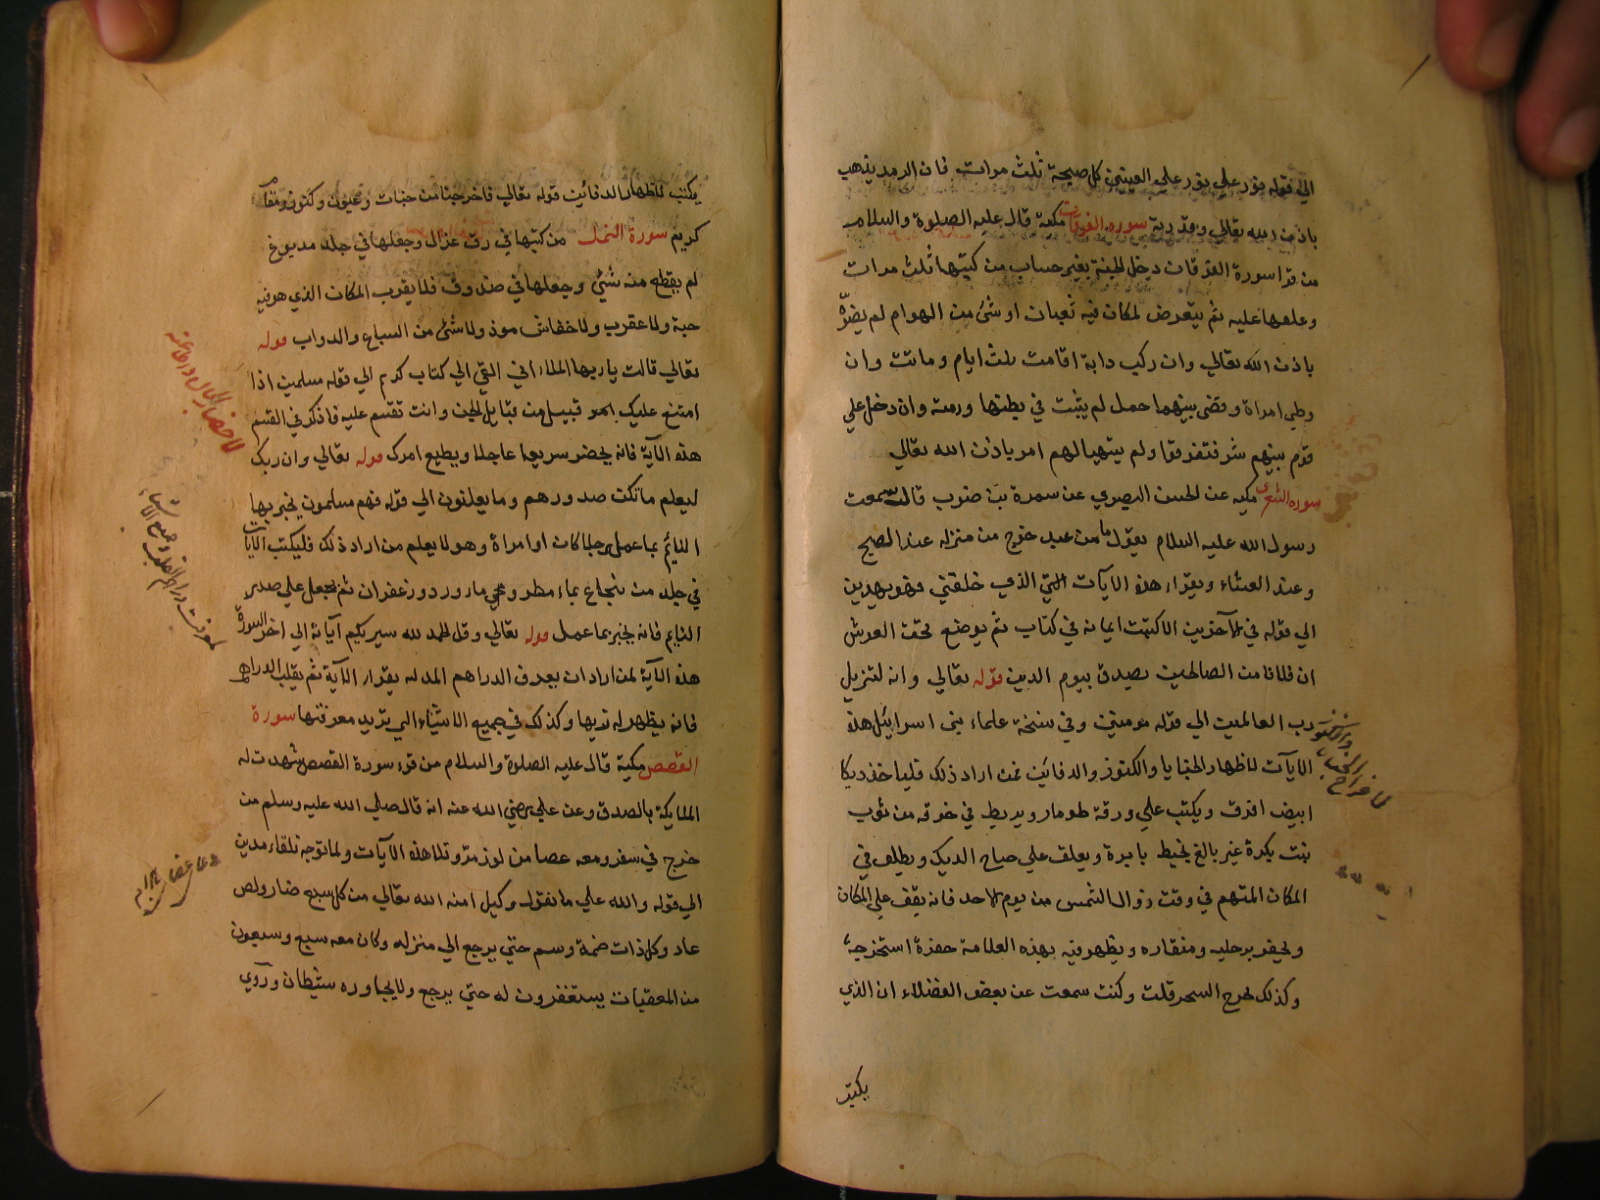 الي قوله نور علي نور علي العينين كل صبيحة ثلث مرات فان الرمد يذهب
باذن الله تعالي وقدرته سورة الفرقان مكية قال عليه الصلوة والسلام
من قرا سورة الفرقان دخل الجنة بغير حساب من كتبها ثلث مرات
وعلقها عليه ثم يتعرض لمكان فيه ثعبان او شئ من الهوام لم يضرّه
باذن الله تعالي وان ركب دابة اقامت ثلث ايام وماتت وان
وطي امراة وقضى بينهما حمل لم يثبت في بطنها ورمته وان دخل علي
قوم بينهم شر فتفرقوا ولم يتهيا لهم امر باذن الله تعالي
سورة الشعرى مكيه عن الحسن البصري عن سمرة بن ضرب قال سمعت
رسول الله عليه السلام يقول ما من عبد خرج من منزله عند الصبح
وعند العشاء ويقراء هذه الايات التي الذي خلقني فهو يهدين
الي قوله في الاخرين الا كتبت ايمانه في كتاب ثم يوضع تحت العرش
ان فلانا من الصالحين يصدق بيوم الدين قوله تعالي وانه لتنزيل
رب العالمين الي قوله مومنين وفي نسخة علماء بني اسرائيل هذه
الايات لاظهار الخبايا والكنوز والدفائن فمن اراد ذلك فلياخذ ديكا
ابيض افرق ويكتب علي ورقة طومار ويربط في خرقه من ثوب
بنت بكرة غير بالغ بخيط بابرة ويعلق علي جناح الديك ويطلق في
المكان المتهم في وقت زوال الشمس من يوم الاحد فانه يقف علي المكان
ويحفر برجليه ومنقاره ويظهر فيه بهذه العلامة حفرة استخرجه
وكذلك يخرج السحر قلت وكنت سمعت عن بعض الفضلاء ان الذي
يكتب
يكتب لاظهار الدفائن قوله تعالي فاخرجنا من جنات وعيون وكنوز ومقام
كريم سورة النمل من كتبها في رق غزال وجعلها في جلد مدبوغ
لم يقطع منه شئ وجعلها في صندوق فلا يقرب المكان الذي هو فيه
حية ولا عقرب ولا خفاش موذ ولا شئ من السباع والدواب قوله
تعالي قالت يا ايها الملاء اني القي الي كتاب كريم الي قوله مسلمين اذا
امتنع عليك قبيل من قبايل الجن وانت تقسم عليه فاذكر في القسم
هذه الآية فانه يحضر سريعا عاجلا ويطيع امرك قوله تعالي وان ربك
ليعلم ما تكن صدورهم وما يعلنون الي قوله فهم مسلمون يخبر بها
النائم بما عمل رجلا كان او امراة وهو لا يعلم من اراد ذلك فليكتب الايات
في جلد من بماء مطر وماورد وزعفران ثم يجعل علي صدر
النايم فانه يخبر بما عمل قوله تعالي وقل الحمد لله سيريكم آياته الي اخر السورة
هذه الآية لمن اراد ان يعرف الدراهم المدلسه يقرا الآية ثم يقلب الدراهم
فانه يظهر له زيفها وكذلك في جميع الاشياء التي تريد معرفتها سورة
القصص مكية قال عليه الصلوة والسلام من قرء سورة القصص شهدت له
الملايكة بالصدق وعن علي رضي الله عنه انه قال صلي الله عليه وسلم من
خرج في سفر ومعه عصا من لوز مر وتلا هذه الآيات ولما توجه تلقاء مدين
الي قوله والله علي ما نقول وكيل امنه الله تعالي من كل سبع ضار ولص
عاد وكل ذات حمة وسم حتي يرجع الي منزله وكان معه سبع وسبعون
من المعقبات يستغفرون له حتي يرجع ولا يجاوره شيطان وروي